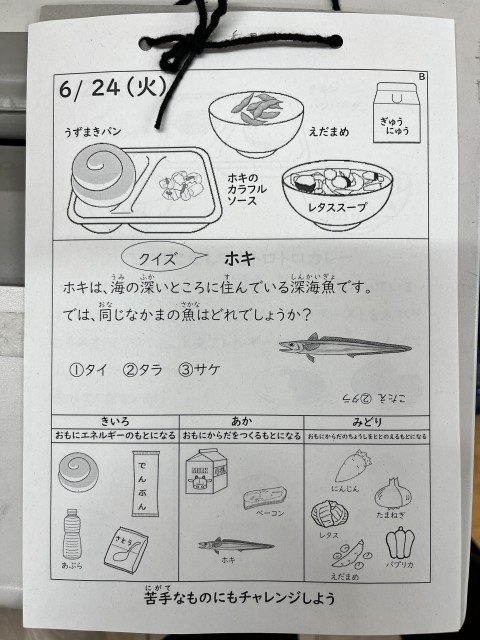 B
6/24(火)
うずまきパン
えだまめ
ぎゅう
にゅう
ホキの
カラフル
ソース
レタススープ
クイズ
ホキ
ホキは、海の深いところに住んでいる深海魚です。
では、同じなかまの魚はどれでしょうか?
①タイ ②タラ ③サケ
こたえ ②タラ
きいろ
おもにエネルギーのもとになる
でんぷん
あぶら
さとう
あか
おもにからだをつくるもとになる
ベーコン
ホキ
みどり
おもにからだのちょうしをととのえるもとになる
にんじん
たまねぎ
レタス
えだまめ
パプリカ
苦手なものにもチャレンジしよう